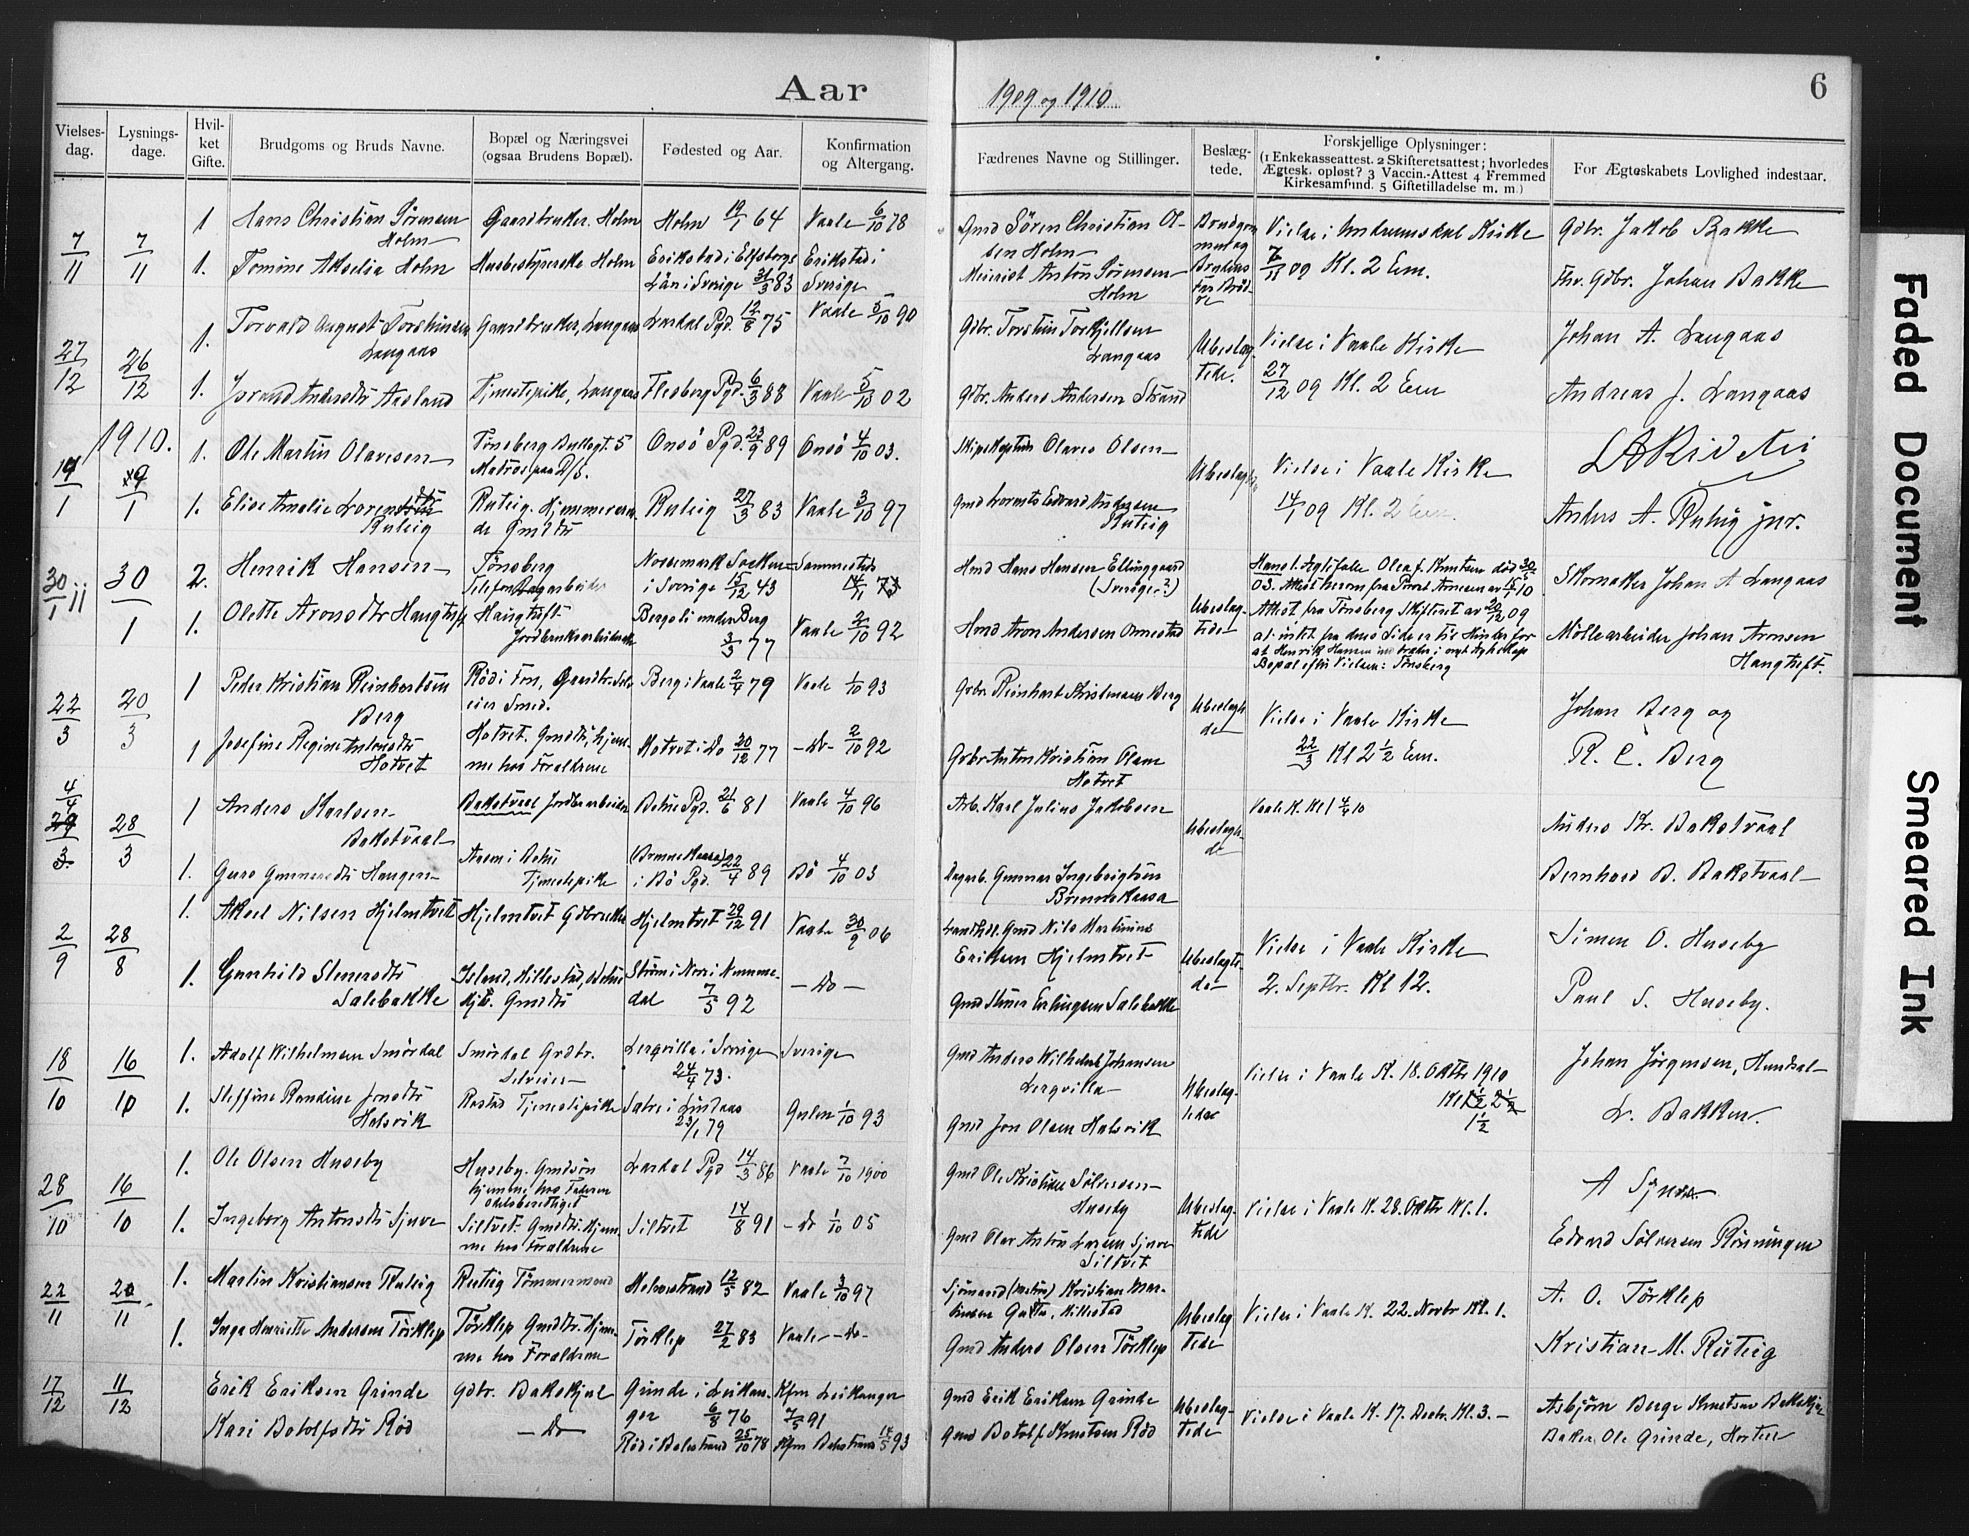 Aar
1909 og 1910
6
Vielses-dag.
Lysnings-dage.
Hvil-ket Gifte.
Brudgoms og Bruds Navne.
Bopæl og Næringsvei (ogsaa Brudens Bopæl).
Fødested og Aar.
Konfirmation og Altergang.
Fædrenes Navne og Stillinger.
Beslæg-tede.
Forskjellige Oplysninger:
(1 Enkekasseattest. 2 Skifteretsattest; hvorledes
Ægtesk. opløst? 3 Vaccin.-Attest 4 Fremmed
Kirkesamfund. 5 Giftetilladelse m. m.)
For Ægteskabets Lovlighed indestaar.
7/11 7/11
1 Hans Christian Sørensen Holm
Gaardbruker. Holm
Holm 19/1 64
Vaale 6/10 78
Gmd Søren Christian Ol-
sen Holm
Vielse i Undrumsdal Kirke
7/11 09 Kl. 2 Em.
Gdbr. Jakob Bakke
1. Tomine Akselia Holm
Husbestyrerske Holm
Erikstad i Elfsborgs
Län i Sverige 31/3 83
Erikstad i
Sverige
Anton Sørensen
Holm
Fhv. Gdbr. Johan Bakke
27/12 26/12
1. Torvald August Torstensen
Langaas
Gaardbruker, Langaas
Lardal Pgd. 12/8 75
Vaale 5/10 90
Gdbr. Torstein Torkjelsen
Langaas
Ubeslæg-
tede.
Vielse i Vaale Kirke
27/12 09 Kl. 2 Em
Johan A. Langaas
1. Andersdtr Aasland
Tjenestepike, Langaas
Flesberg Pgd. 6/3 88
Vaale 5/10 02
Gdbr. Anders Andersen Strand
Andreas J. Langaas
1910.
1. Ole Martin Olavesen
Tønsberg
Onsö Pgd. 23/9 89
Onsö 4/10 03.
Skipskaptein Olaves Olsen
Vielse i Vaale Kirke
14/1 09 Kl. 2 Em.
1. Elise Amalie Lorentsdtr
Ruteig
Ruteig. Hjemmeværen-
de Gmdtr
Ruteig 27/3 83
Vaale 3/10 97
Gmd Lorents Edvard Andersen
Ruteig
Anders A. Ruteig jnr.
30/1 11 30/1
2. Henrik Hansen
Tønsberg
Telefondagarbeider
Nössemark Socken
i Sverige 15/12 43
Sammesteds
Hmd Hans Hansen Ellingsgaard
(Sverige?)
Ubeslæg-
tede
Bopæl efter Vielsen: Tönsberg
Skomaker Johan A Langaas
1. Olette Aronsdtr Haugtuft
Haugtuft
Bergsli under Berg
3/3 77
Vaale 2/10 92
Hmd Aron Andersen
Møllearbeider Johan Aronsen
Haugtuft.
22/3 20/3
1 Peder Kristian Reinhartsen
Berg
Rød i Fon, Gaardbr. Selv-
eier Smed.
Berg i Vaale 2/4 79
Vaale 1/10 93
Gdbr. Reinhart Kristensen Berg
Vielse i Vaale Kirke
22/3 Kl 2 1/2 Em.
Johan Berg og
R. C. Berg
1 Josefine Regine Antonsdtr
Hotvet
Hotvet. Gmdtr, hjem-
me hos Forældrene
Hotvet i Do 30/12 77
- Do - 2/10 92
Gdbr. Anton Kristian Olsen
Hotvet
4/4 29/3 28/3
1 Anders Karlsen
Bakstvaal
Bakstvaal Jordbrarbeider
Botne Pgd. 21/6 81
Vaale 4/10 96
Arb. Karl Julius Jakobsen
Vaale K. Kl 1 4/4 10
Anders Kr. Bakstvaal
1. Guro Gunnersdtr Haugen
Aasen i Botne
Tjenestepike
i Bö Pgd. 22/4 89
Bö 4/10 03
Dagarb. Gunnar Ingebrigtsen
Bernhard B. Bakstvaal
2/9 28/8
1. Aksel Nilsen Hjelmtvet
Hjelmtvet Gdbruker
Hjelmtvet 29/12 91
Vaale 30/9 06
Landhdl. Gmd Nils Martinius
Eriksen Hjelmtvet
Ubeslægte-
de
Vielse i Vaale Kirke
2. Septbr. Kl 12.
Simen O. Huseby
1. Gunhild Stenersdtr
Salebakke
Island, Hillestad, Botne
Hjv. Gmdtr
Strøm i Nore i Numme-
dal 7/5 92
- Do -
Gmd Stener Erlingsen Salebakke
Paul S. Huseby.
18/10 16/10
1. Adolf Wilhelmsen Smördal
Smördal Grdbr.
Selveier
Lerqvilla i Sverige
24/4 73.
Sverige
Gmd Anders Wilhelm Johansen
Lerqvilla
Ubeslæg-
tede
Vielse i Vaale K. 18. Oktbr 1910
1 1/2
Johan Jørgensen, Hundsal
1. Steffine Randine Jonsdtr
Halsvik
Rastad Tjenestepike
Sætre i Lindaas
23/1 79
Gulen 1/10 93
Gmd Jon Olsen Halsvik
L. Bakken.
28/10 16/10
1. Ole Olsen Huseby
Huseby. Gmdsön
hjemme hos Faderen
Odelsberettiget
Lardal Pgd 14/3 86
Vaale 7/10 1900
Gmd Ole Kristian Sölvesen
Huseby
Ubeslæg-
tede
Vielse i Vaale K. 28. Oktbr Kl. 1.
A Sjuve
1. Ingeborg Antonsdtr Sjuve
Siltvet. Gmdtr. Hjem-
me hos Forældrene
Siltvet 14/8 91
- Do 1/10 05
Gmd Olav Anton Larsen Sjuve
Siltvet
Edvard Sölvesen Rönningen
22/11 20/11
1. Martin Kristiansen Ruteig
Ruteig Tömmermand
Holmestrand 12/5 82
Vaale 3/10 97
Sjömand Kristian Mar-
tinsen Hillestad
Ubeslæg-
tede
Vielse i Vaale K. 22. Novbr Kl. 1.
A. O. Törklep
1. Inga Henriette Andersen Törklep
Törklep Gmdtr. Hjem-
me hos Forældrene
Törklep 27/2 83
Vaale - Do -
Gmd Anders Olsen Törklep
Kristian M. Ruteig
17/12 11/12
Erik Eriksen Grinde
Gdbr. Bakskjul
Grinde i Leikan-
ger 6/8 76
Kfm Leikanger
7/5 91
Gmd Erik Eriksen Grinde
Ubeslæg-
tede
Vielse i Vaale K. 17. Decbr. Kl. 3.
Asbjørn Berge Knutsen
Kari Botolfsdtr Röd
- Do
Röd i Balestrand 25/10 78
Kfm Balestrand 14/5 93
Gmd Botolf Knutsen Röd
Baker Ole Grinde, Horten
Faded Document
Smeared Ink